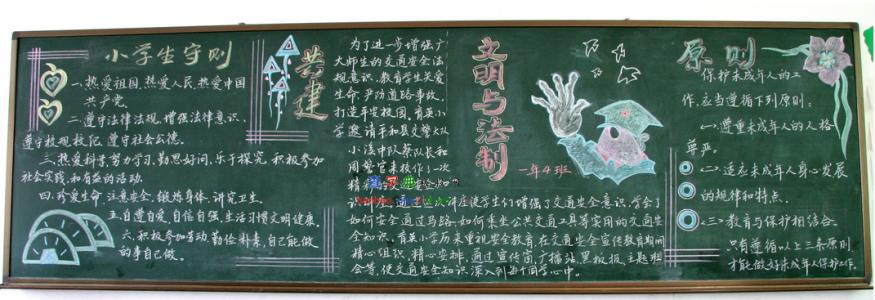 小学生守则
一、热爱祖国,热爱人民,热爱中国
共产党。
二、遵守法律法规,增强法律意识.
遵守校规校纪,遵守社会公德。
三、热爱科学,努力学习,勤思好问,乐于探究,积极参加
社会实践和有益的活动.
四、珍爱生命,注意安全,锻炼身体,讲究卫生。
五、自尊自爱,自信自强,生活习惯文明健康.
六、积极参加劳动,勤俭朴素,自己能做
的事自己做。
共建
为了进一步增强广
大师生的交通安全法
规意识,教育学生关爱
生命,严防道路事故.
打造平安校园.育英小
学邀请平和县交警大队
小溪中队蔡队长和
周警官来校作了一次
精彩的交通安全知
通过这次讲座使学生们增强了交通安全意识,学会了
如何安全通过马路,如何乘坐公共交通工具等实用的交通安
全知识。育英小学历来重视安全教育,在交通安全宣传教育期间
精心组织,精心安排,通过宣传窗,广播站,黑板报,主题班
会等,使交通安全知识深入到每个同学心中.
文明与法制
一年4班
原则
保护未成年人的工
作,应当遵循下列原则:
<一>尊重未成年人的人格
尊严。
<二>适应未成年人身心发展
的规律和特点.
<三>教育与保护相结合。
只有遵循以上三条原则
才能做好未成年人保护工作.